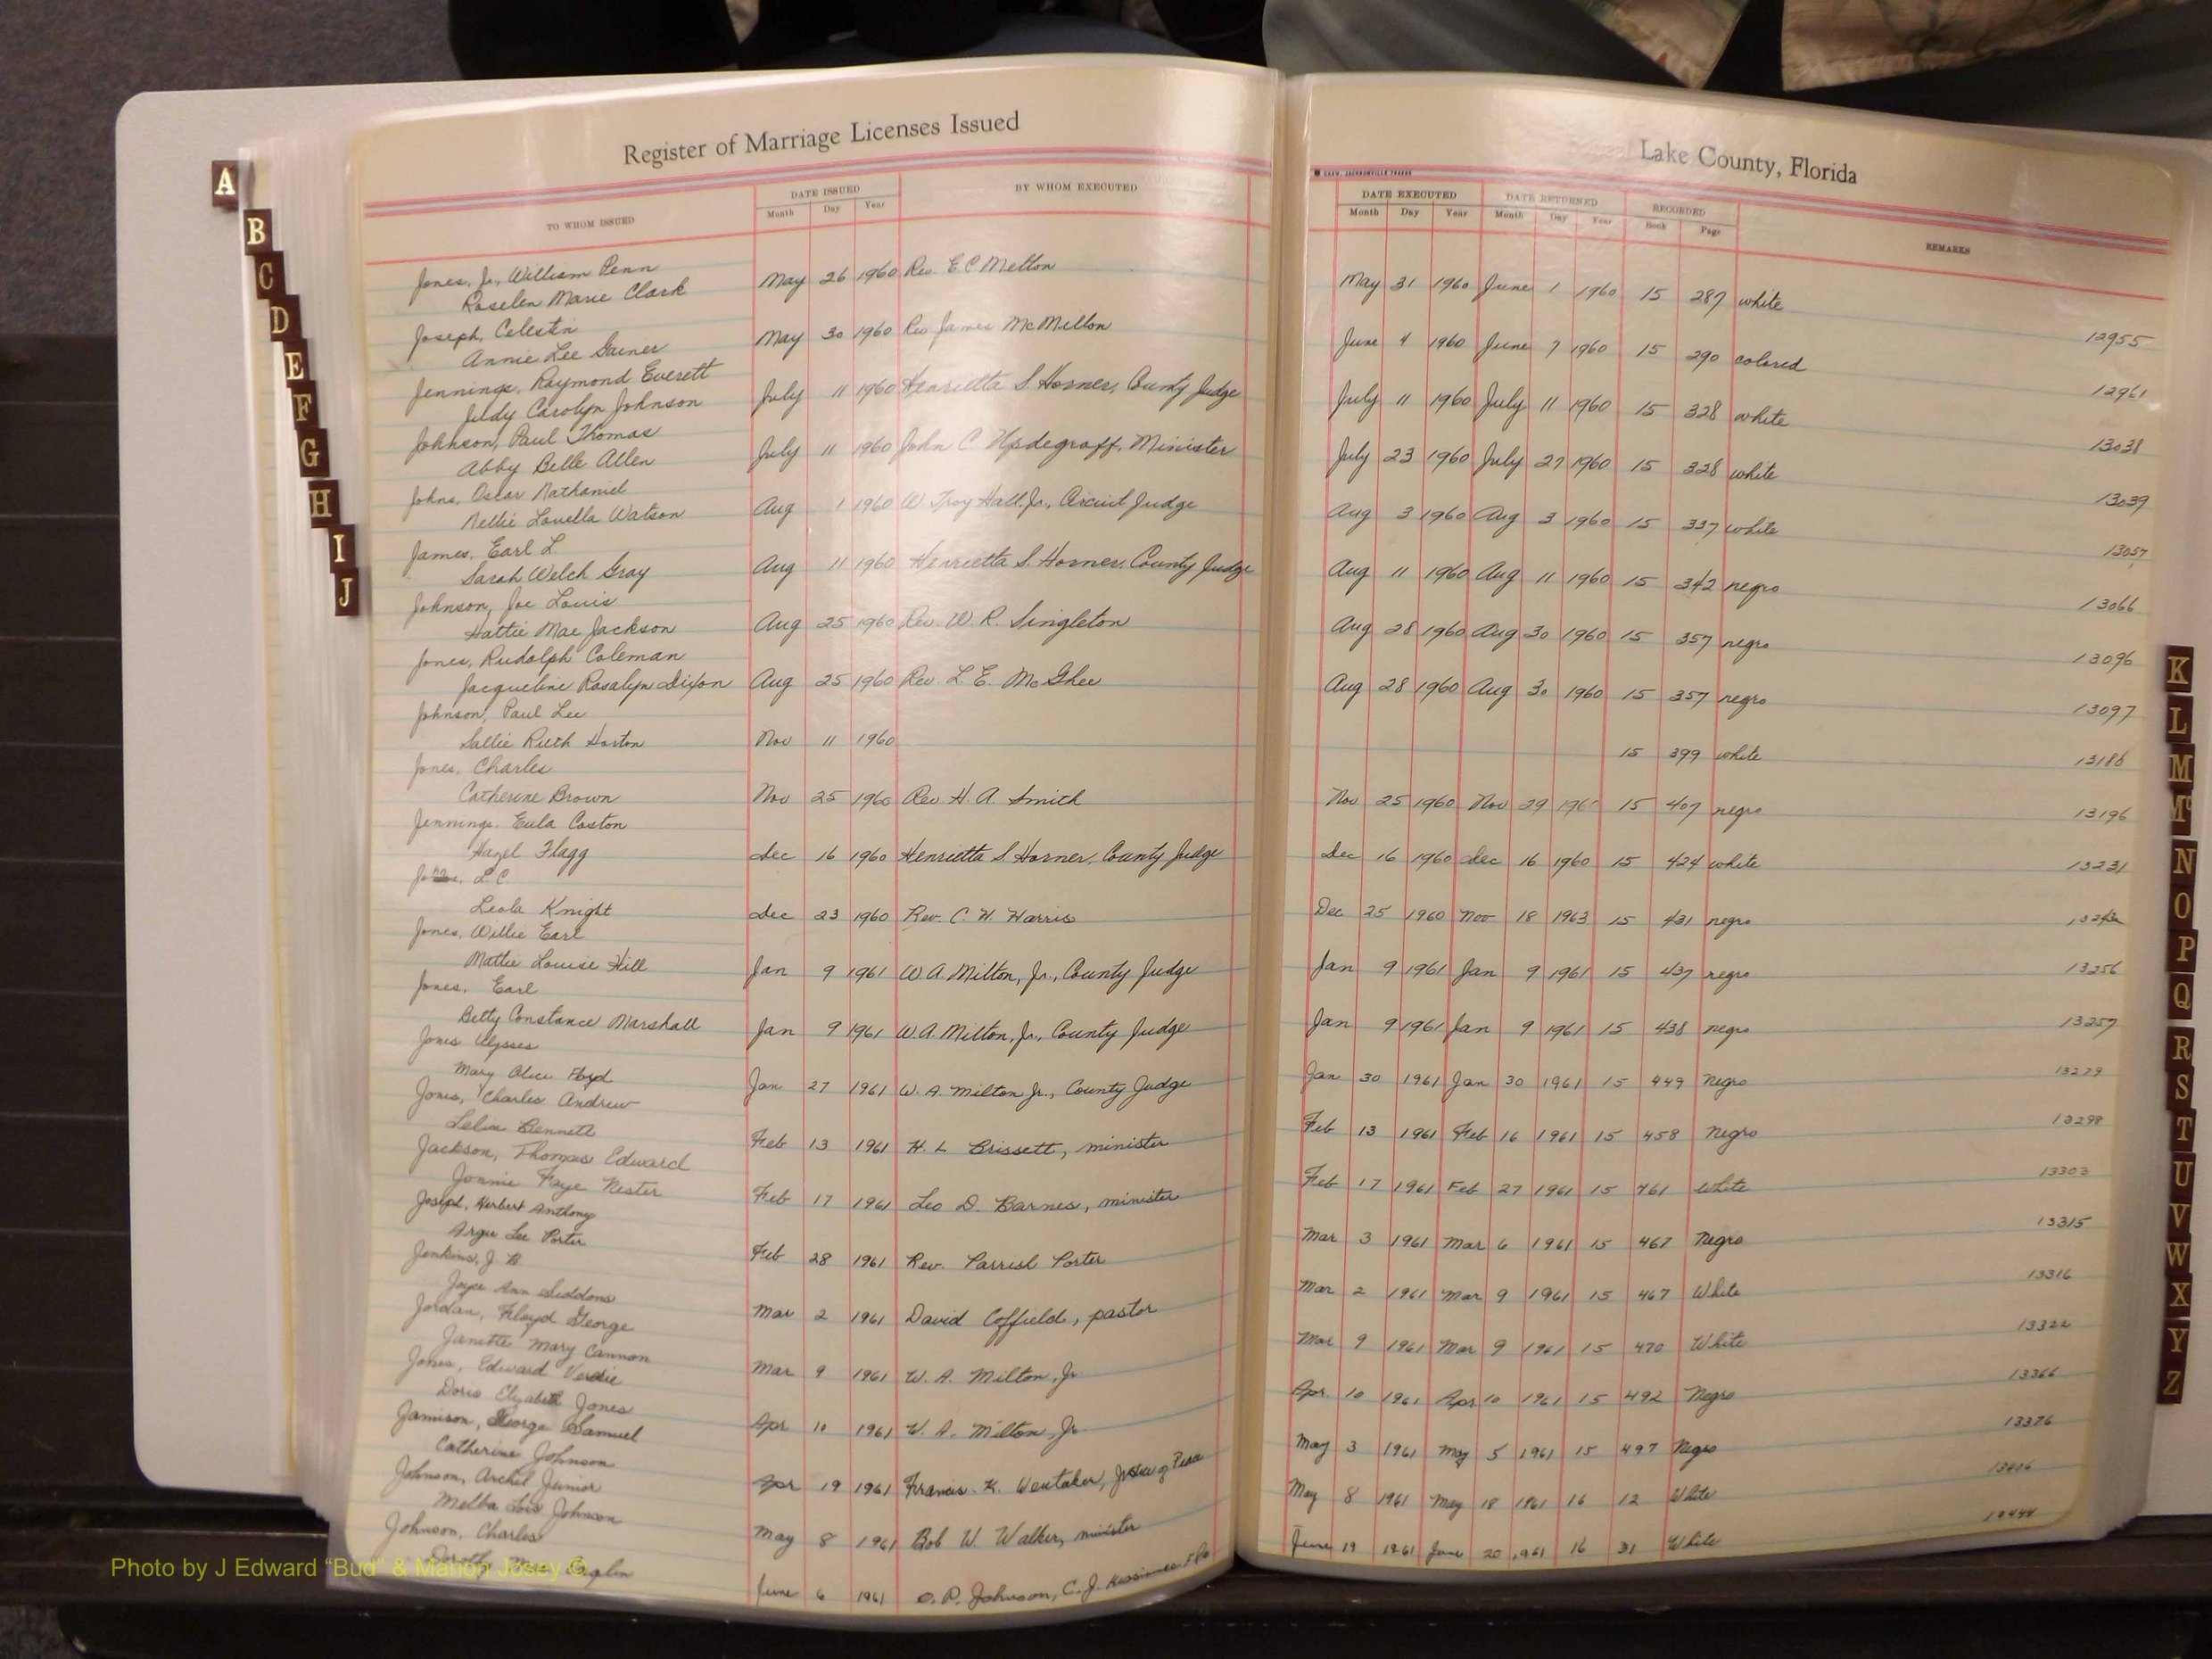 Register of Marriage Licenses Issued
Lake County, Florida
TO WHOM ISSUED
DATE ISSUED
Month Day Year
BY WHOM EXECUTED
DATE EXECUTED
Month Day Year
DATE RETURNED
Month Day Year
RECORDED
Book Page
REMARKS
Jones, Jr, William Penn
Roselen Marie Clark
May 26 1960 Rev. E C Melton May 31 1960 June 1 1960 15 287 white
12955
Joseph, Celestin
Annie Lee Gainer
May 30 1960 Rev James McMillon June 4 1960 June 7 1960 15 290 colored
12961
Jennings, Raymond Everett
Judy Carolyn Johnson
July 11 1960 Henrietta S. Horner, County Judge July 11 1960 July 11 1960 15 328 white
13038
Johnson, Paul Thomas
Abby Belle Allen
July 11 1960 John C. Updegraff, Minister July 23 1960 July 27 1960 15 328 white
13039
Johns, Oscar Nathaniel
Nellie Louella Watson
Aug 1 1960 W. Troy Hall, Jr., Circuit Judge Aug 3 1960 Aug 3 1960 15 337 white
13057
James, Earl L.
Sarah Welch Gray
Aug 11 1960 Henrietta S. Horner, County Judge Aug 11 1960 Aug 11 1960 15 342 negro
13066
Johnson, Joe Louis
Hattie Mae Jackson
Aug 25 1960 Rev. W. R. Singleton Aug 28 1960 Aug 30 1960 15 357 negro
13096
Jones, Rudolph Coleman
Jacqueline Rosalyn Dixon
Aug 25 1960 Rev. L. E. McGhee Aug 28 1960 Aug 30 1960 15 357 negro
13097
Johnson, Paul Lee
Sallie Ruth Horton
Nov 11 1960 15 399 white
13186
Jones, Charles
Catherine Brown
Nov 25 1960 Rev H. A. Smith Nov 25 1960 Nov 29 1960 15 407 negro
13196
Jennings, Eula Caston
Hazel Flagg
Dec 16 1960 Henrietta S. Horner, County Judge Dec 16 1960 Dec 16 1960 15 424 white
13231
L. C.
Leola Knight
Dec 23 1960 Rev. C. H. Harris Dec 25 1960 Nov 18 1963 15 431 negro
Jones, Willie Earl
Mattie Louise Hill
Jan 9 1961 W. A. Milton, Jr., County Judge Jan 9 1961 Jan 9 1961 15 437 negro
13256
Jones, Earl
Betty Constance Marshall
Jan 9 1961 W. A. Milton, Jr., County Judge Jan 9 1961 Jan 9 1961 15 438 negro
13257
Jones Ulysses
Mary Alice Floyd
Jan 27 1961 W. A. Milton Jr., County Judge Jan 30 1961 Jan 30 1961 15 449 Negro
13279
Jones, Charles Andrew
Bennett
Feb 13 1961 H. L Brissett, minister Feb 13 1961 Feb 16 1961 15 458 Negro
13298
Jackson, Thomas Edward
Jonnie Faye Nester
Feb 17 1961 Leo D. Barnes, minister Feb 17 1961 Feb 27 1961 15 461 White
13303
Joseph, Herbert Anthony
Lee Porter
Feb 28 1961 Rev. Parrish Porter Mar 3 1961 Mar 6 1961 15 467 Negro
13315
Jenkins, J. B.
Joyce Ann Siddons
Mar 2 1961 David Coffield, pastor Mar 2 1961 Mar 9 1961 15 467 White
13316
Jordan, Floyd George
Janette Mary Cannon
Mar 9 1961 W. A. Milton, Jr. Mar 9 1961 Mar 9 1961 15 470 White
13322
Jones, Edward
Doris Elizabeth Jones
Apr 10 1961 W. A. Milton, Jr. Apr. 10 1961 Apr 10 1961 15 492 Negro
13366
Jamison, George Samuel
Catherine Johnson
Apr 19 1961 Francis K. Justice of Peace May 3 1961 May 5 1961 15 497 Negro
13376
Johnson, Archel Junior
Melba Lois Johnson
May 8 1961 Bob W. Walker, minister May 8 1961 May 18 1961 16 12 White
Johnson, Charles
June 6 1961 O. P. Johnson, C. J. June 19 1961 June 20 1961 16 31 White
A
B
C
D
E
F
G
H
I
J
K
L
M
Mc
N
O
P
Q
R
S
T
U
V
W
X
Y
Z
Photo by J Edward “Bud” & Marion Josey ©